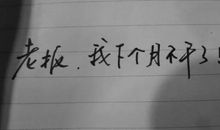 老板，我下个月不干了！